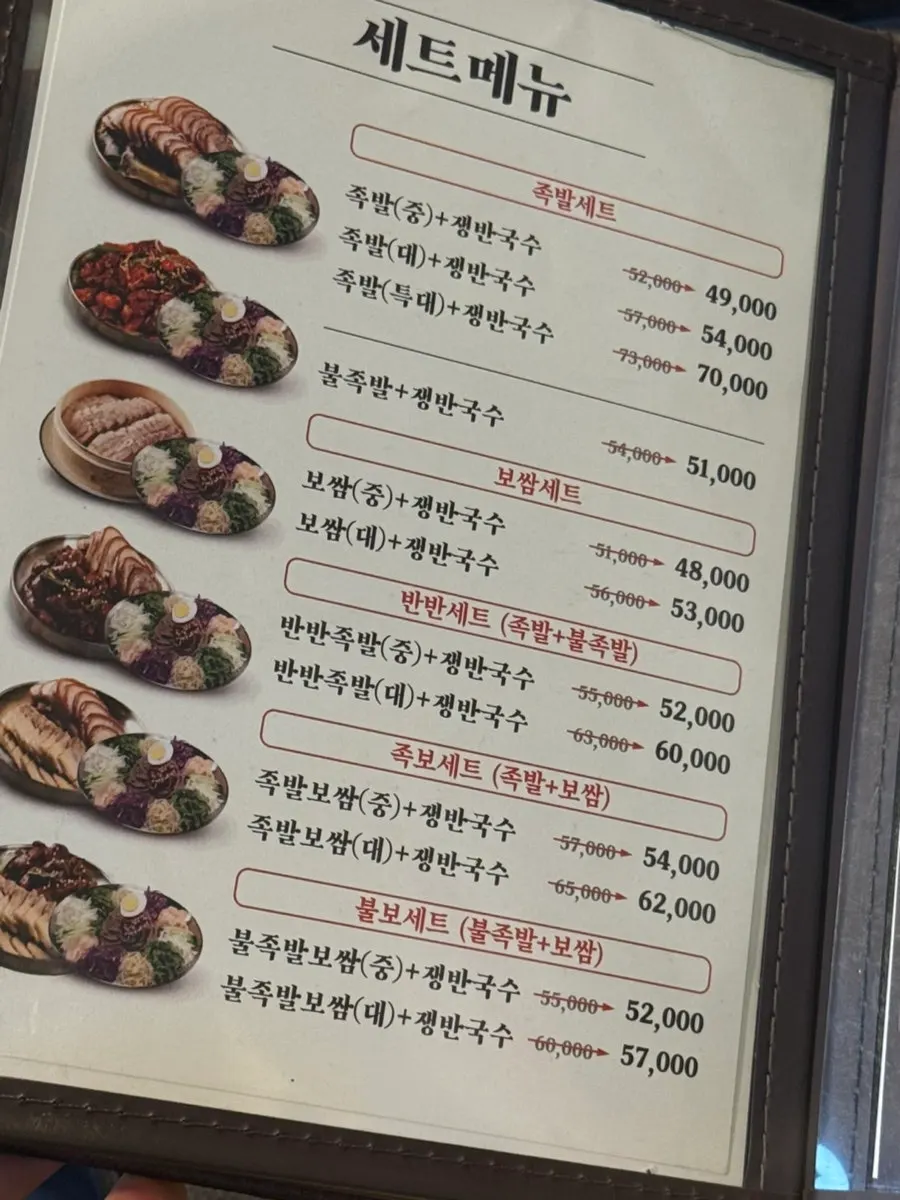 세트메뉴
족발세트
족발(중)+쟁반국수 52,000 49,000
족발(대)+쟁반국수 57,000 54,000
족발(특대)+쟁반국수 73,000 70,000
불족발+쟁반국수 54,000 51,000
보쌈세트
보쌈(중)+쟁반국수 51,000 48,000
보쌈(대)+쟁반국수 56,000 53,000
반반세트 (족발+불족발)
반반족발(중)+쟁반국수 55,000 52,000
반반족발(대)+쟁반국수 63,000 60,000
족보세트 (족발+보쌈)
족발보쌈(중)+쟁반국수 57,000 54,000
족발보쌈(대)+쟁반국수 65,000 62,000
불보세트 (불족발+보쌈)
불족발보쌈(중)+쟁반국수 55,000 52,000
불족발보쌈(대)+쟁반국수 60,000 57,000